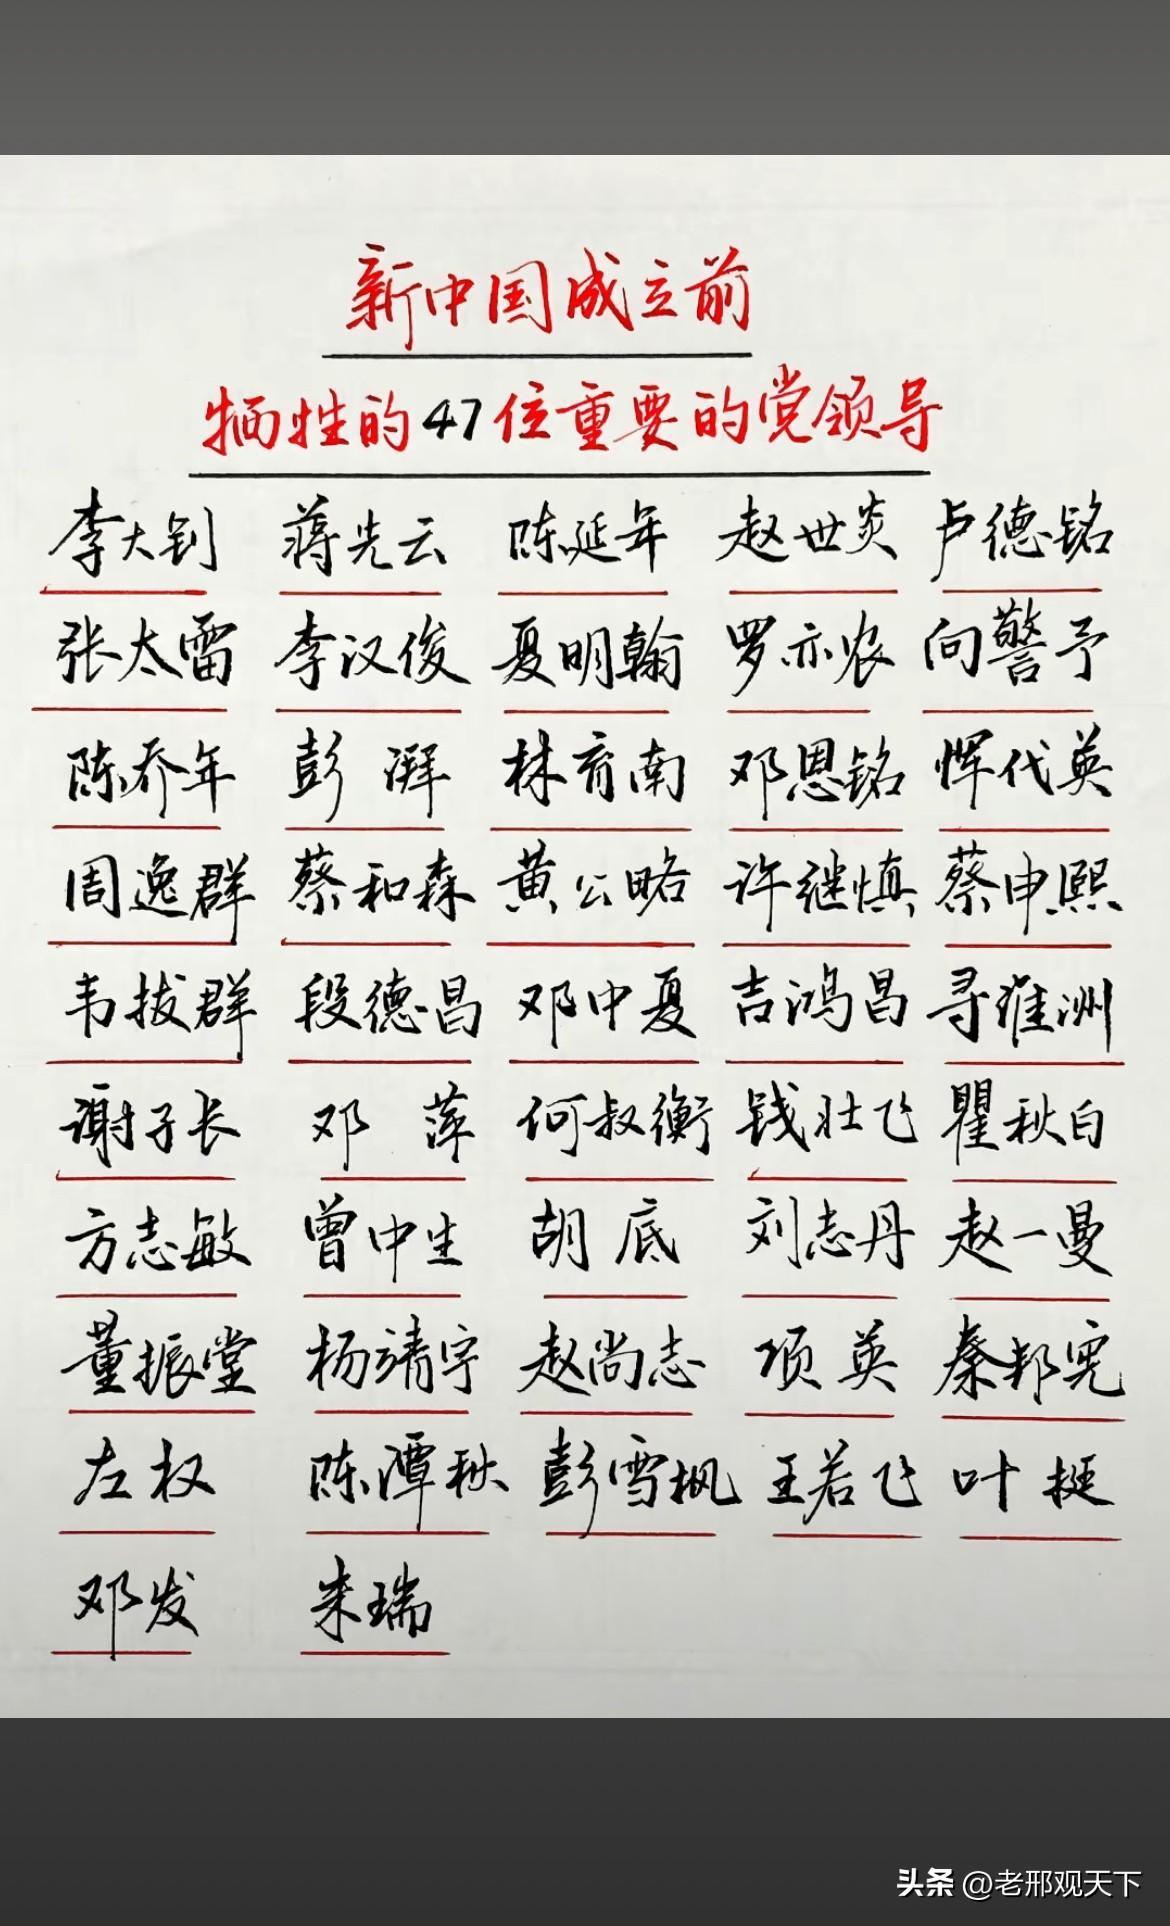 新中国成立前
牺牲的47位重要的党领导
李大钊 蒋先云 陈延年 赵世炎 卢德铭
张太雷 李汉俊 夏明翰 罗亦农 向警予
陈乔年 彭湃 林育南 邓恩铭 恽代英
周逸群 蔡和森 黄公略 许继慎 蔡申熙
韦拔群 段德昌 邓中夏 吉鸿昌 寻淮洲
谢子长 邓萍 何叔衡 钱壮飞 瞿秋白
方志敏 曾中生 胡底 刘志丹 赵一曼
董振堂 杨靖宇 赵尚志 项英 秦邦宪
左权 陈潭秋 彭雪枫 王若飞 叶挺
邓发 朱瑞
头条 @老邢观天下